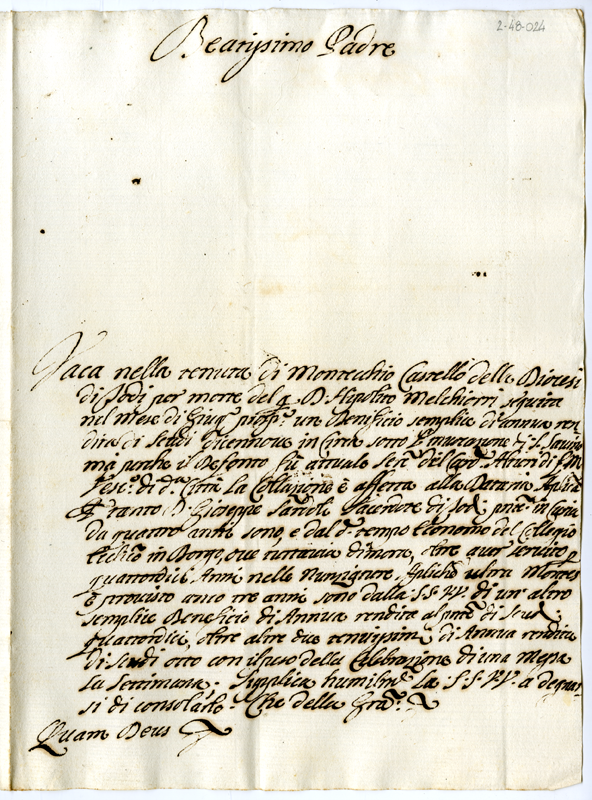 2-48-024
Beatissimo Padre
Vaca nella tenuta di Montecchio Castello della Diocesi
di Todi per morte del q. D. Hipolito Melchiorri seguita
nel mese di Giug.º pross.º un Beneficio semplice di annua ren
dita di Scudi dicennove in circa sotto l'invocazione di S.
mà perche il Defonto fù attuale del Card. di
Vesc.º di d.ª Città la Collazione è affetta alla Dataria
tanto D. Giuseppe Sacerdote di Todi in Curia
da quattro anni sono, e dal d.º tempo Economo del Collegio
in Borgo, ove tuttavia dimora, oltre aver servito p
quattordici Anni nelle Nunziature Apliche ultra Montes
è provisto anco tre anni sono dalla S.S. VV. di un altro
semplice Beneficio di Annua rendita al di Scudi
quattordici, oltre altre due tenuissime di Annua rendita
di Scudi otto con il peso della Celebrazione di una messa
la Settimana. Supplica humilm.e la S.S. VV. a degnar
si di consolarlo. Che della Gra.
Quam Deus